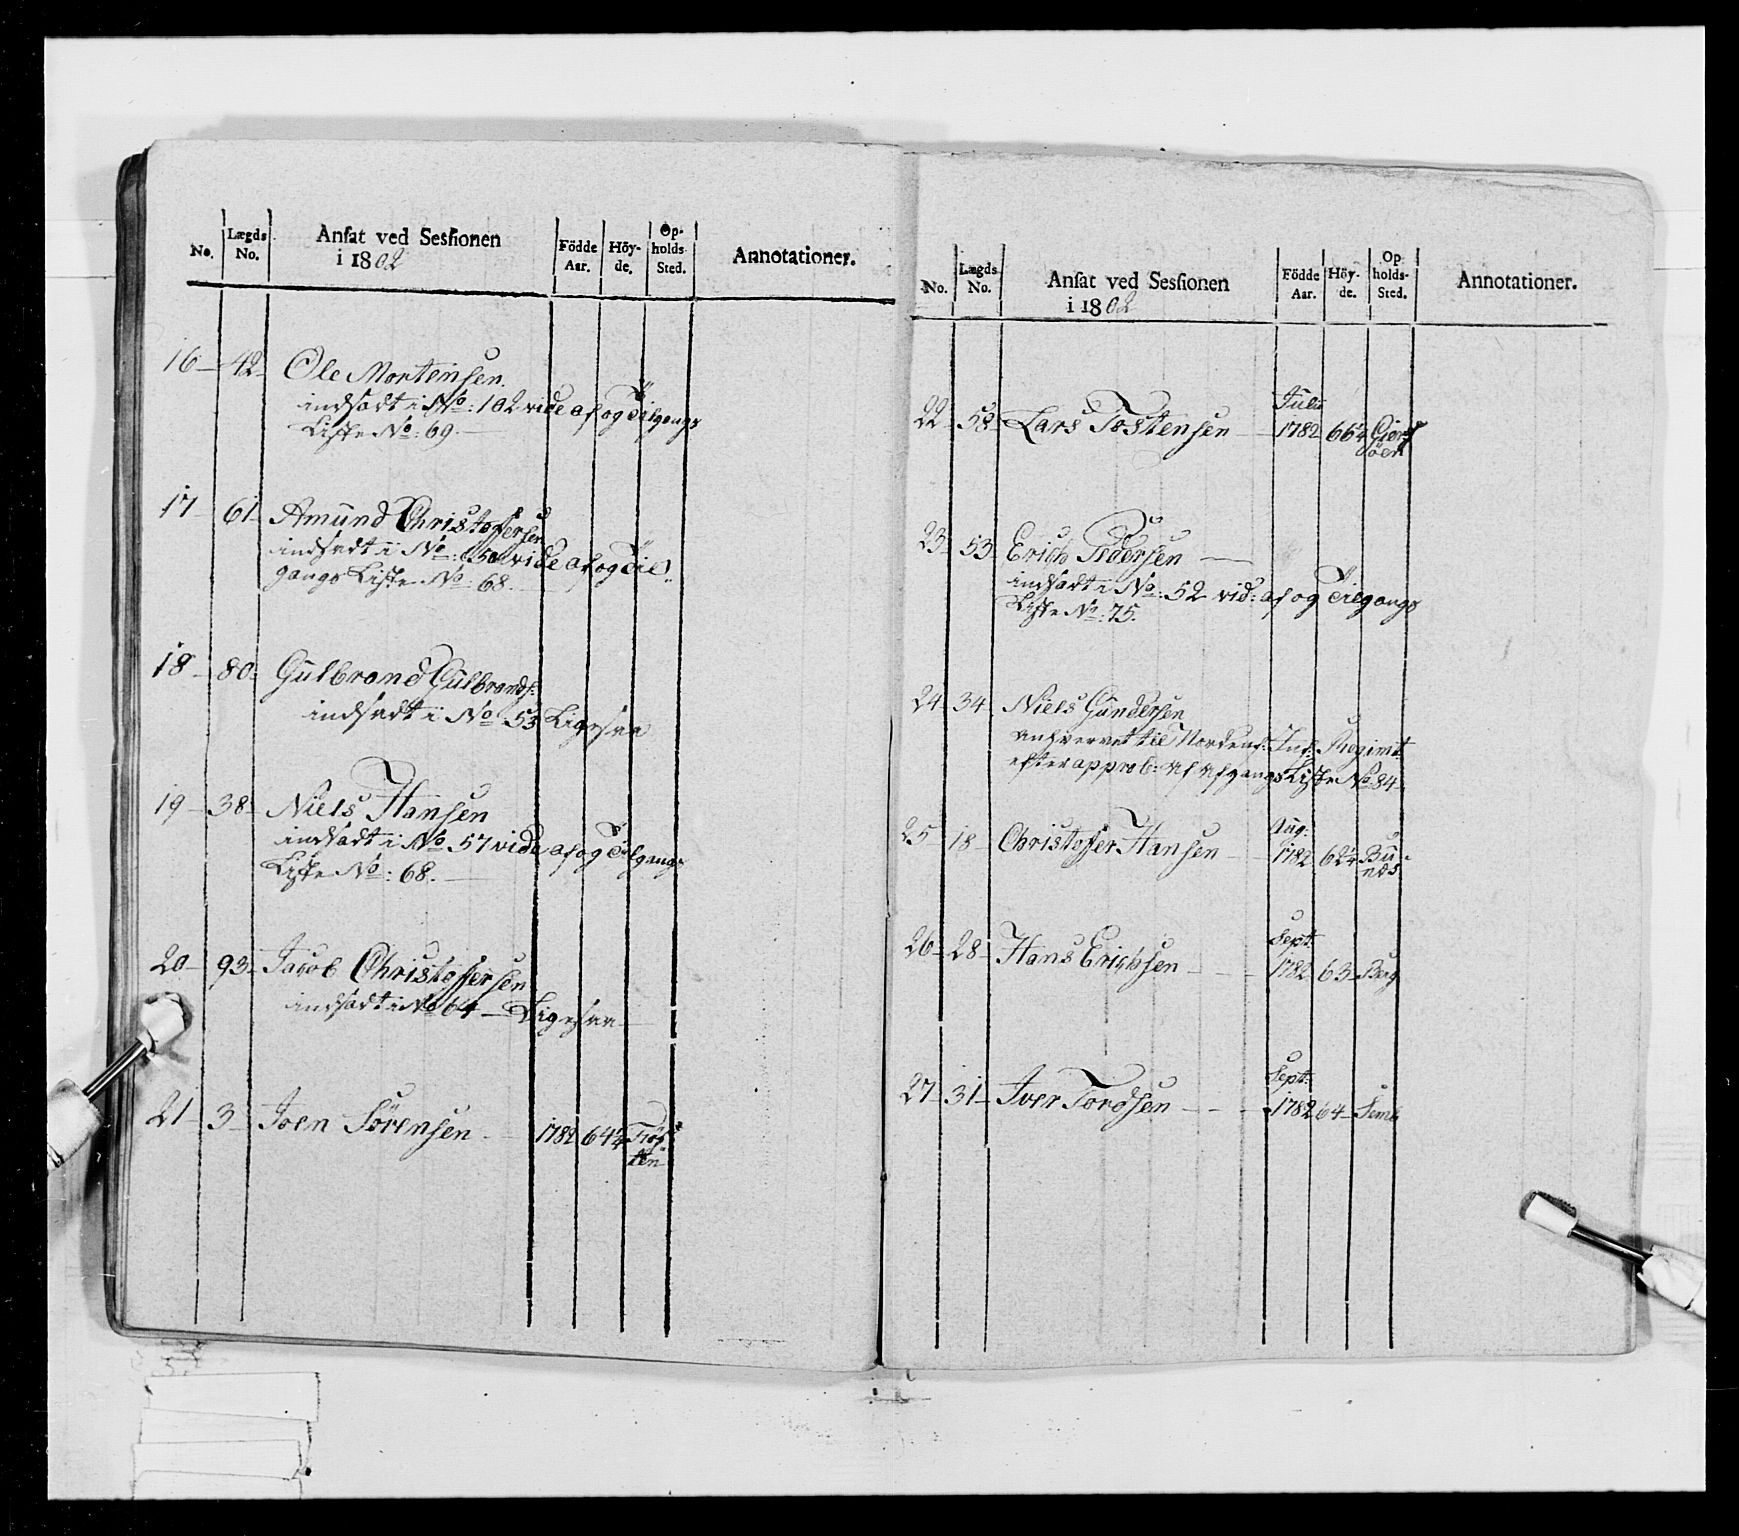 No. | Lægds No. | Ansat ved Sessionen i 1802 | Födde Aar. | Höy-de. | Op-holds-Sted. | Annotationer.
16 - 42 - Ole Mortensen.
indsadt i No: 102 vide af og Tilgangs
Liste No: 69.
17 - 61 - Amund Christoffersen
indsadt i No: 50 vide af og Til-
gangs Liste No: 68.
18 - 80 - Gulbrand Gulbrands:
indsadt i No 53 Ligesaa
19 - 38 - Niels Hansen
indsadt i No 57 vide af og Tilgangs
Liste No: 68.
20 - 93 - Jacob Christoffersen
indsadt i No 64 - Ligesaa
21 - 3 - Joen Sörensen - 1782 64¼
No. | Lægds No. | Ansat ved Sessionen i 1802 | Födde Aar. | Höy-de. | Op-holds-Sted. | Annotationer.
Julii
22 - 58 - Lars Tostensen - 1782 66¼
23 - 53 - Erich Pedersen
indsadt i No: 52 vid: af og Tilgangs
Liste No: 75.
24 34 Niels Gundersen
anhvervet til Nordenf: Inf: Regimt
efter approb: af Afgangs Liste No 84
Aug:
25 18 Christoffer Hansen - 1782 62¼
Sept:
26 - 28 - Hans Erichsen - 1782 63 Berg
Sept:
27 - 31 - Iver Tordsen - 1782 64